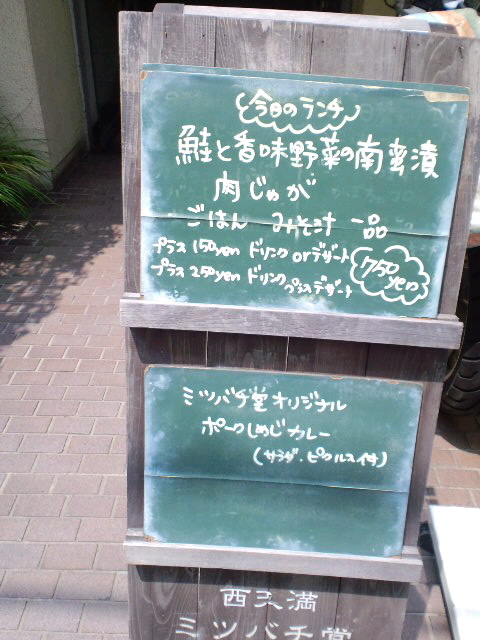 今日のランチ
鮭と香味野菜の南蛮漬
肉じゃが
ごはん みそ汁 一品
プラス 150yen ドリンク orデザート
プラス 250yen ドリンクプラスデザート
750yen
ミツバチ堂オリジナル
ポークしめじカレー
(サラダ・ピクルス付)
西天満
ミツバチ堂